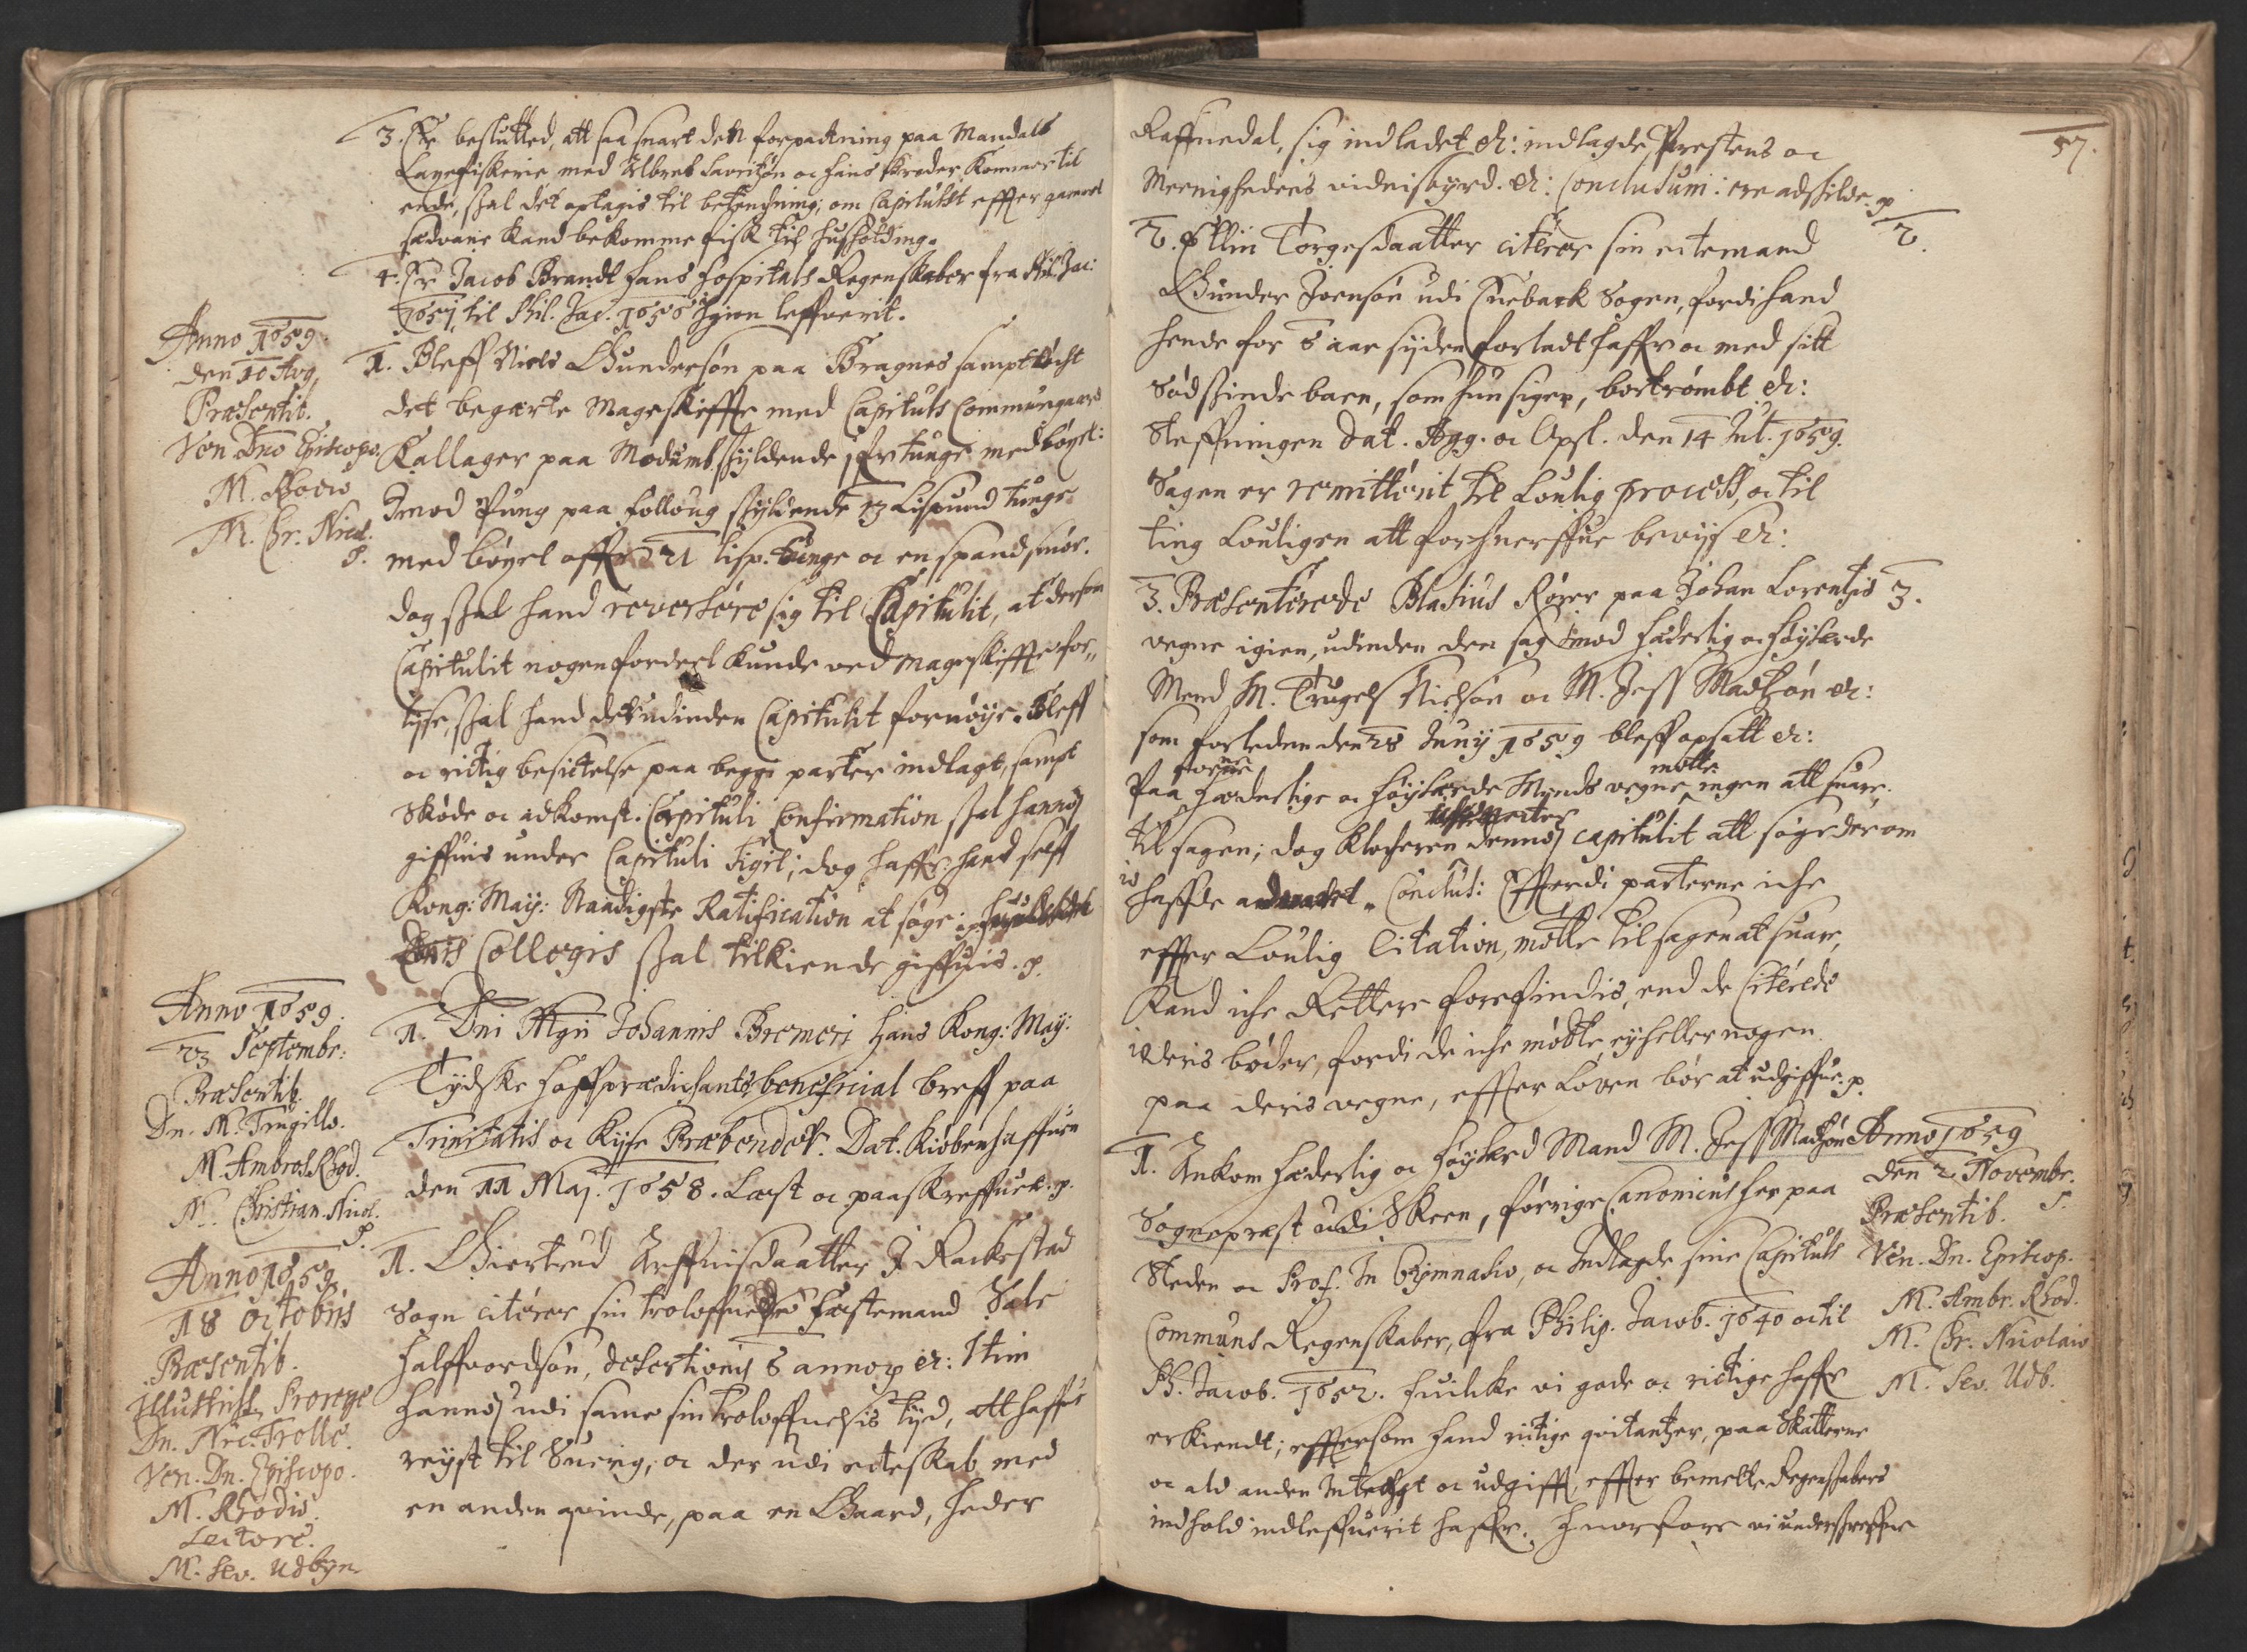 3. Er beslutted, att saa snart den forpactning paa Mandals
Laxefiskerie med Albret Lauritzøn oc hans brøder kommer til
ende, skal det optagis til betenchning, om Capitulet effter gammel
sædvane kand bekomme fisk til huusholding.
4. Er Jacob Brandt hans Hospitals Regenskaber fra Phil. Jac:
1657, til Phil. Jac. 1658 igien leffverit.
Anno 1659.
den 10 Aug.
Præsentib.
Ven. Dno Episcopo.
M. Rhodio
M. Chr. Nicol.
1. Bleff Niels Gundersøn paa Bragnes samptøcht
det begærte Mageskiffte med Capituls Communsgaard
Kallager paa Modumb, skyldende fr tunge med bøxel:
Imod Pung paa Folloug skyldende 13 Lispund tunge
med bøxel offr 21 lisp. tunge oc en spand smør.
dog skal hand reversere sig til Capitulit, at dersom
Capitulit nogen fordeel kunde ved mageskiffte for„
lise, skal hand det udinden Capitulit fornøye. Bleff
oc rictig besictelse paa begge parter indlagt, sampt
Skøde oc adkomst. Capituli Confirmation skal hannom
giffuis under Capituli Sigil; dog haffr hand selff
Kong: May: Naadigste Ratification at søge;
Collegis skal tilkiende giffuis. p.
Anno 1659.
23 Septembr:
Præsentib.
Dn. M. Trugillo.
M. Ambros. Rhod.
M. Christian. Nicol.
1. Dni Mgri Johannis Bremeri Hans Kong: May:
Tydske Hoffprædichants beneficial breff paa
Trinitatis oc Kysse Præbender. Dat. Kiøbenhaffuen
den 11 Maj. 1658. Læst oc paaskreffuen. p.
Anno 1659.
18 Octobris
Præsentib.
Illustriss. Prorege
Dn. Nic. Trolle.
Ven. Dn. Episcopo.
M. Rhodio.
Lectore.
M. Sev. Udbyn.
1. Giertrud Arffuisdaatter I Rackestad
Sogn citerer sin troloffuede Fæstemand Hale
Halffvordsøn, desertionis 6 annor. er: Item
hannom udi samme sin troloffuelsis tyd, att haffue
reyst til Suerig, oc der udi ecteskab med
en anden qvinde, paa en Gaard, heder
57.
Raffnedal, sig indladet &: indlagde Prestens oc
Meenighedens vidnisbyrd. &: Conclusum: ere adskilde. p
2. Ellin Torgersdaatter citerer sin ectemand 2.
Gunder Joensøn udi Eneback Sogen, fordi hand
hende for 6 aar syden forladt haffr oc med sitt
Sødskinde barn, som hun siger, bortrømbt. &:
Steffningen dat. Agg. oc Opsl. den 14 Jul. 1659.
Sagen er remitterit til Loulig process, oc til
ting Louligen att forhuerffue bevys &:
3. Præsenterede Blasius Rører paa Johan Lorentzis 3.
vegne igien, udinden den sag imod hæderlig oc høylærde
Mend M. Trugels Nielsøn oc M. Jess Madtzøn &:
som forleden den 28 Junij 1659 bleff opsatt &:
Paa forne hæderlige oc høylærde Mends vegne møtte ingen att suare,
til sagen; dog Klocheren dennom capitulit att søge derom
haffde. Conclus: Efftterdi parterne iche
effter Loulig Citation, møtte til sagen at suare,
Kand iche Rettere forefindis, end de Citerede
io deris bøder, fordi de iche møtte, ey heller nogen
paa deris vegne, effter Loven bør at udgiffue. p.
Anno 1659
den 2. Novembr.
Præsentib.
Ven. Dn. Episcop.
M. Ambr. Rhod.
M. Chr. Nicolaio
M. Sev. Udb.
1. Ankom hæderlig oc høylærd Mand M. Jess Madtzøn
Sogneprest udi Skeen, forrige Canonicus her paa
Steden oc Prof. In Gymnasio, oc Indlagde sine Capituls
Communs Regenskaber, fra Philip. Jacob. 1640 oc til
Ph. Jacob. 1652. huilcke vi gode oc rictige haffr
erkiendt; efftersom hand rictige qvitantzer, paa Skatterne
oc ald anden Intecht oc udgifft effter bemelte Regenskabers
indhold indleffuerit haffr. Huorfore vi underskreffne